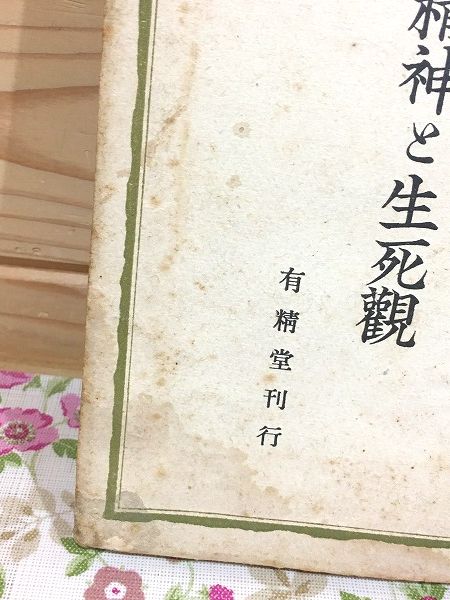 精神と生死觀
有精堂刊行